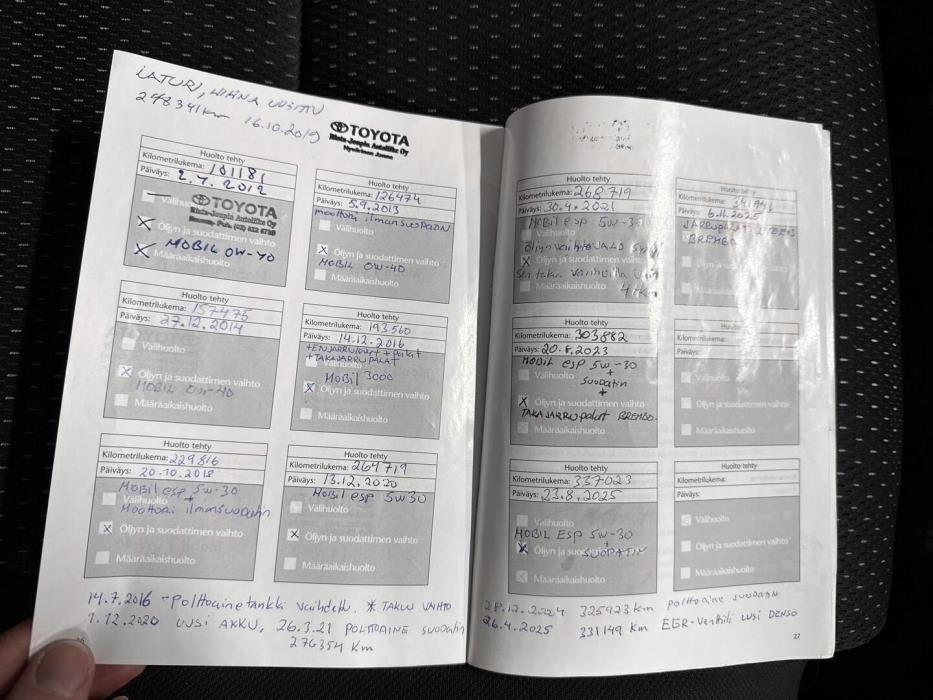 LATURI, HIHNA UUSITTU
248341km 16.10.2019
TOYOTA
Rinta-Joupin Autoliike Oy
Huolto tehty
Kilometrilukema: 101181
Päiväys: 2.7.2012
Välihuolto
TOYOTA
Rinta-Joupin Autoliike Oy
X Öljyn ja suodattimen vaihto
X MOBIL 0W-40
Määräaikaishuolto
Huolto tehty
Kilometrilukema: 126474
Päiväys: 5.9.2013
moottori ilmansuodatin
Välihuolto
X Öljyn ja suodattimen vaihto
MOBIL 0W-40
Määräaikaishuolto
Huolto tehty
Kilometrilukema: 157475
Päiväys: 27.12.2014
Välihuolto
X Öljyn ja suodattimen vaihto
MOBIL 0W-40
Määräaikaishuolto
Huolto tehty
Kilometrilukema: 193560
Päiväys: 14.12.2016
+ETUJARRULEVYT + palat
+TAKAJARRUPALAT
Välihuolto
MOBIL 3000
X Öljyn ja suodattimen vaihto
Määräaikaishuolto
Huolto tehty
Kilometrilukema: 229816
Päiväys: 20.10.2018
MOBIL esp 5W-30
+
Välihuolto
Moottori ilmansuodatin
X Öljyn ja suodattimen vaihto
Määräaikaishuolto
Huolto tehty
Kilometrilukema: 264719
Päiväys: 13.12.2020
MOBIL esp 5W30
Välihuolto
X Öljyn ja suodattimen vaihto
Määräaikaishuolto
14.7.2016 - Polttoainetankki vaihdettu. * TAKUU VAIHTO
1.12.2020 UUSI AKKU, 26.3.21 POLTTOAINE suodatin
276354 Km
Huolto tehty
Kilometrilukema: 268719
Päiväys: 30.4.2021
MOBIL esp 5W-30
Välihuolto
Öljynvaihto
X Öljyn ja suodattimen vaihto
Määräaikaishuolto
Huolto tehty
Kilometrilukema:
Päiväys: 6.11.2025
JARRUPALAT
BREMBO
Huolto tehty
Kilometrilukema: 303882
Päiväys: 20.8.2023
MOBIL esp 5W-30
+
Välihuolto
suodatin
+
X Öljyn ja suodattimen vaihto
TAKAJARRUpalat BREMBO
Määräaikaishuolto
Huolto tehty
Kilometrilukema:
Päiväys:
Välihuolto
Öljyn ja suodattimen vaihto
Määräaikaishuolto
Huolto tehty
Kilometrilukema: 337023
Päiväys: 23.8.2025
Välihuolto
MOBIL ESP 5W-30
+
X Öljyn ja suodattimen vaihto
SUODATIN
Määräaikaishuolto
Huolto tehty
Kilometrilukema:
Päiväys:
Välihuolto
Öljyn ja suodattimen vaihto
Määräaikaishuolto
28.12.2024 325923 km polttoaine suodatin
26.4.2025 331149 km EGR-venttiili uusi DENSO
27